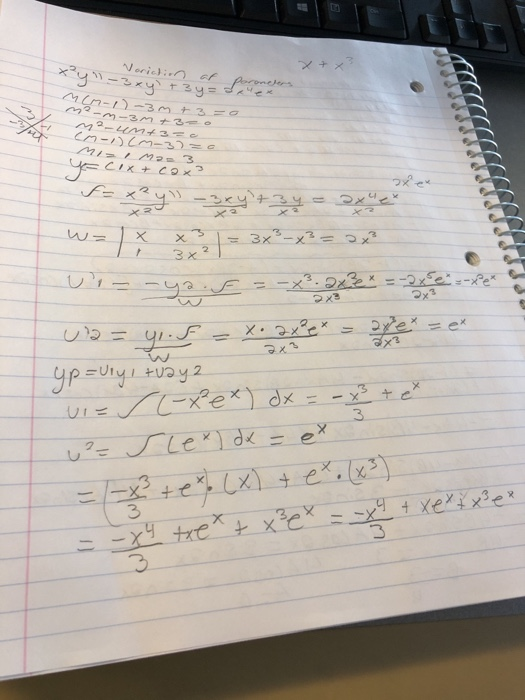 x + x³
Variation of Parameters
x²y'' - 3xy' + 3y = 2x⁴eˣ
m(m-1) - 3m + 3 = 0
m² - m - 3m + 3 = 0
m² - 4m + 3 = 0
(m-1)(m-3) = 0
m1 = 1, m2 = 3
y = C1x + C2x³
2x²eˣ
f = x²y''/x² - 3xy'/x² + 3y/x² = 2x⁴eˣ/x²
W = | x x³ | = 3x³ - x³ = 2x³
| 1 3x² |
U'1 = -y2 · f / W = -x³ · 2x²eˣ / 2x³ = -2x⁵eˣ / 2x³ = -x²eˣ
U'2 = y1 · f / W = x · 2x²eˣ / 2x³ = 2x³eˣ / 2x³ = eˣ
yp = U1y1 + U2y2
U1 = ∫(-x²eˣ) dx = -x³/3 + eˣ
U² = ∫(eˣ) dx = eˣ
= (-x³/3 + eˣ) · (x) + eˣ · (x³)
= -x⁴/3 + xeˣ + x³eˣ = -x⁴/3 + xeˣ + x³eˣ